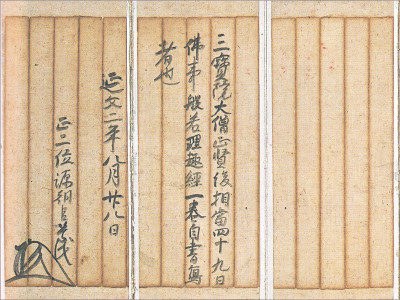 三寳院大僧正賢俊相當四十九日
佛事般若理趣經一巻自書寫
者也
延文二年八月廿八日
正二位源朝臣尊氏